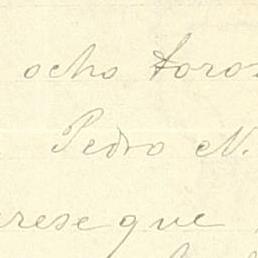 ocho toros
Pedro N.
rese que